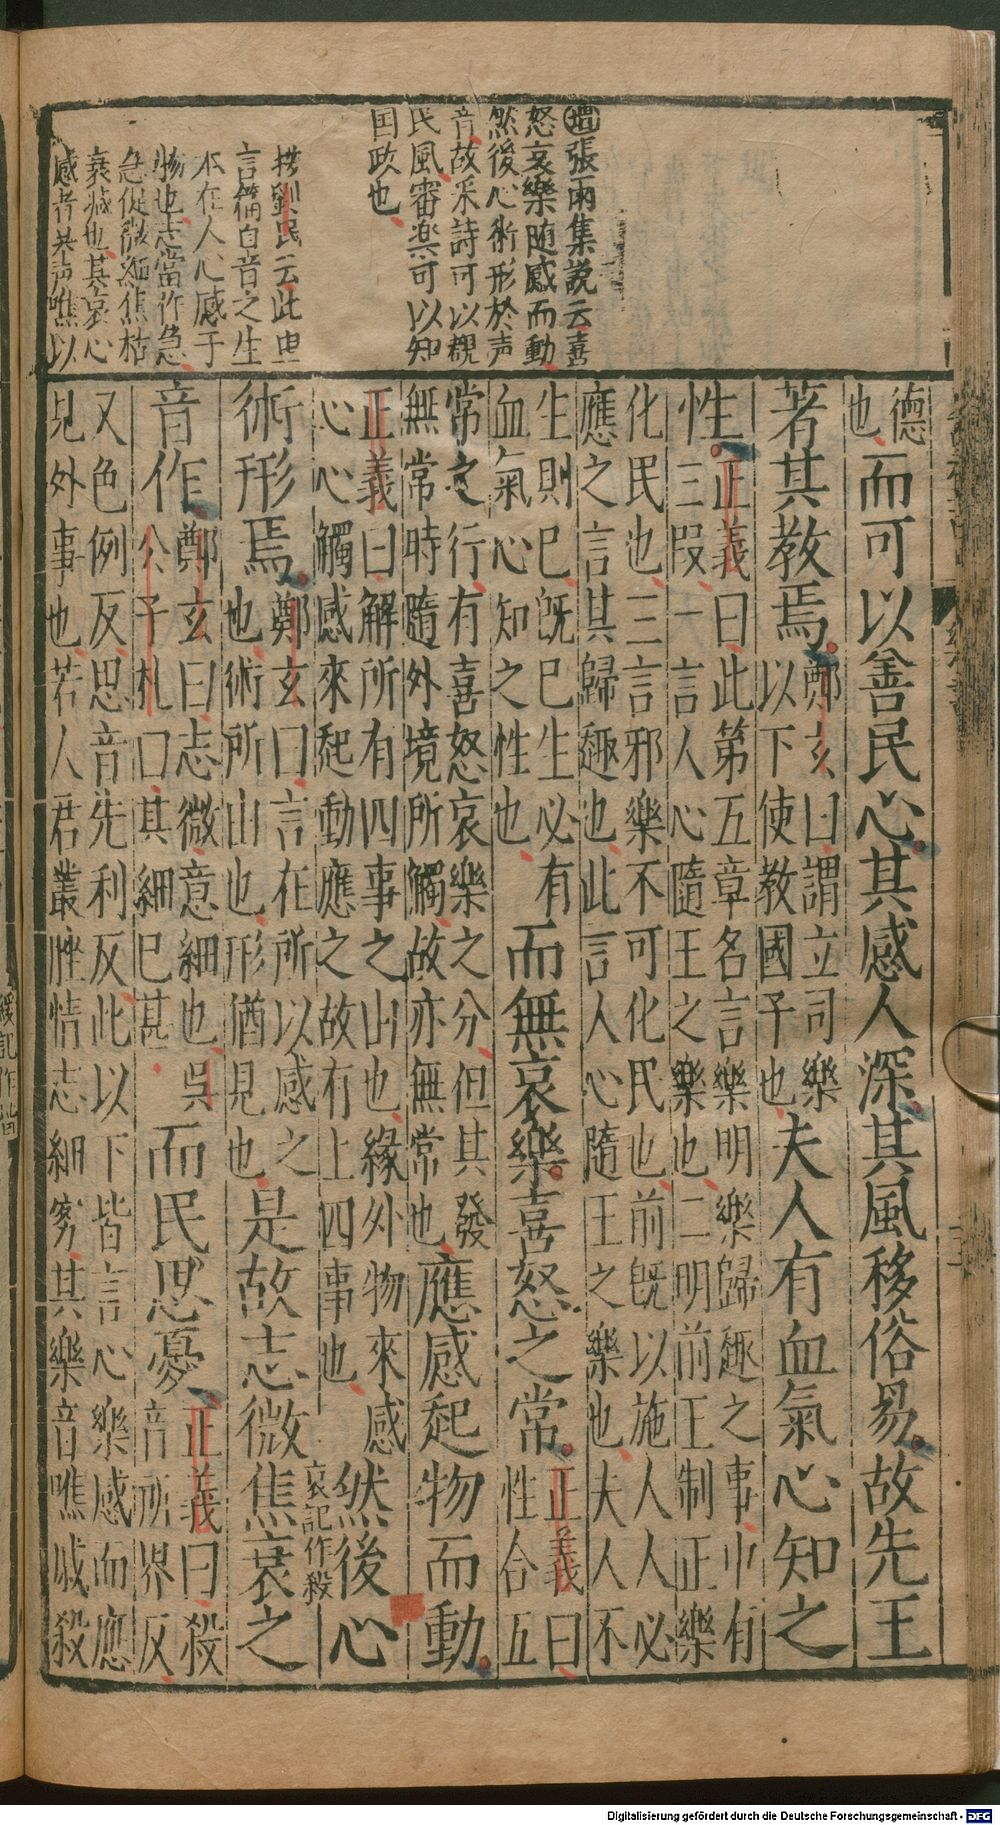 増張雨集說云喜
怒哀樂随感而動
然後心術形於声
音故采詩可以覌
民風審楽可以知
国政也
按劉氏云此申
言篇首音之生
本在人心感于
物也志當作急
急促微細焦枯
衰減也其哀心
感者其声噍以
德也而可以善民心其感人深其風移俗易故先王
著其教焉鄭玄曰謂立司樂以下使教國子也夫人有血氣心知之
性正義曰此第五章名言樂明樂歸趣之事中有三叚一言人心隨王之樂也二明前王制正樂
化民也三言邪樂不可化民也前旣以施人人必應之言其歸趣也此言人心隨王之樂也夫人不
生則已旣已生必有血氣心知之性也而無哀樂喜怒之常正義曰性合五
常之行有喜怒哀樂之分但其發無常時隨外境所觸故亦無常也應感起物而動
正義曰解所有四事之由也緣外物來感心心觸感來起動應之故有上四事也然後心
哀記作殺
術形焉鄭玄曰言在所以感之也術所由也形猶見也是故志微焦衰之
音作鄭玄曰志微意細也吳公子札曰其細已甚而民思憂正義曰殺音所界反
又色例反思音先利反此以下皆言心樂感而應見外事也若人君叢脞情志細劣其樂音噍戚殺
Digitalisierung gefördert durch die Deutsche Forschungsgemeinschaft - DFG